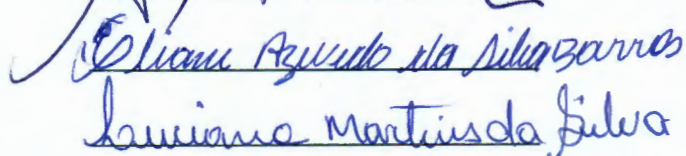 Eliane Azevedo da Silva Barros
Luciana Martins da Silva